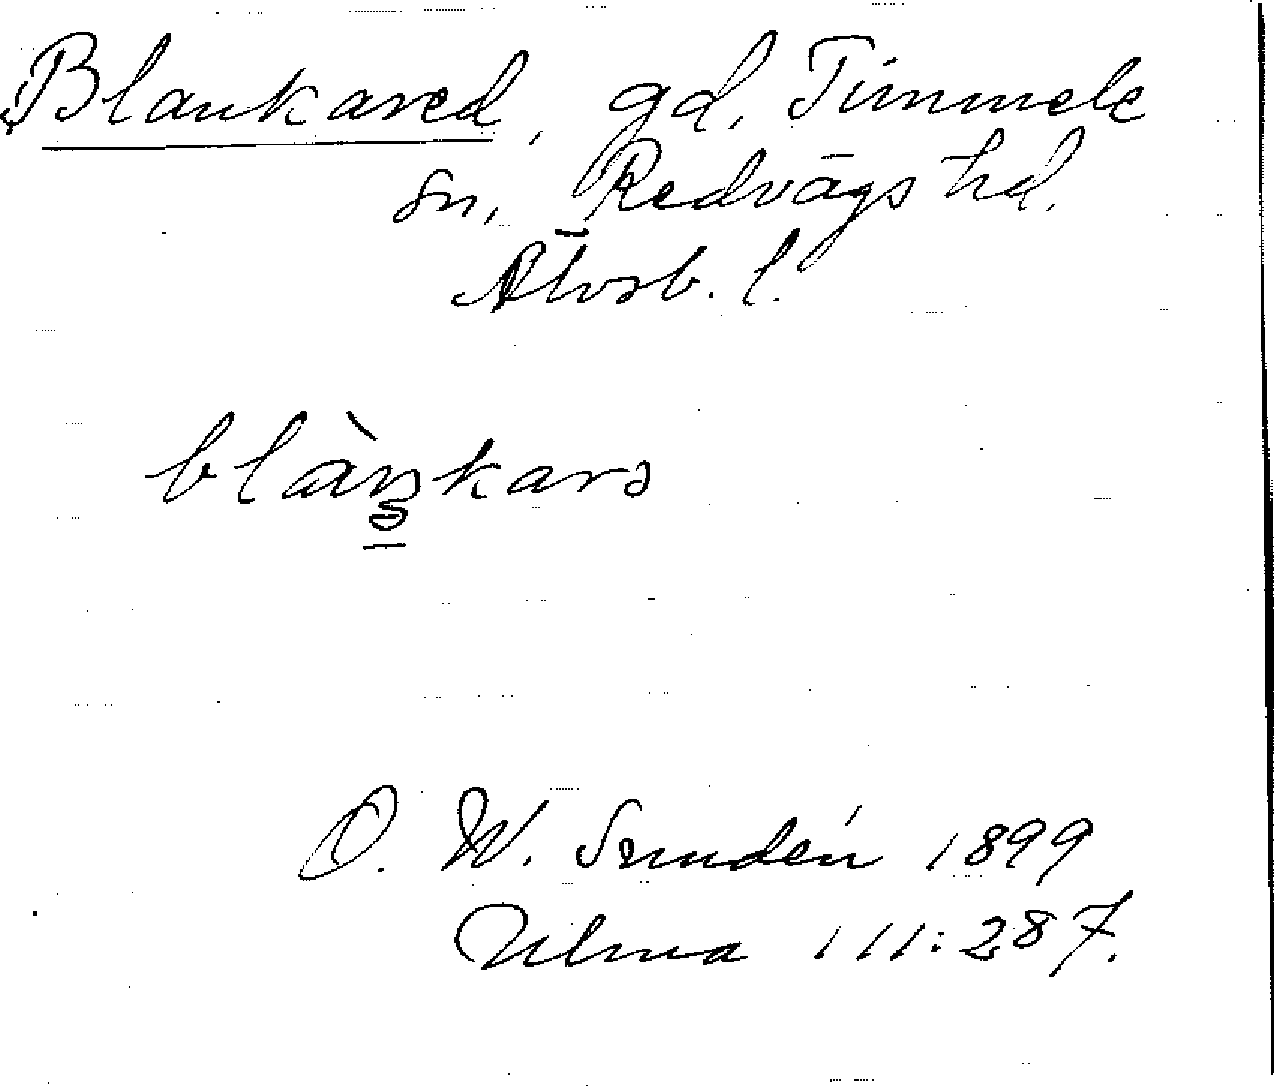 Blankared, gd. Timmele
sn, Redvägs hd.
Älvsb. l.
blàŋkarə
O. W. Sundén 1899
Ulma 111:287.